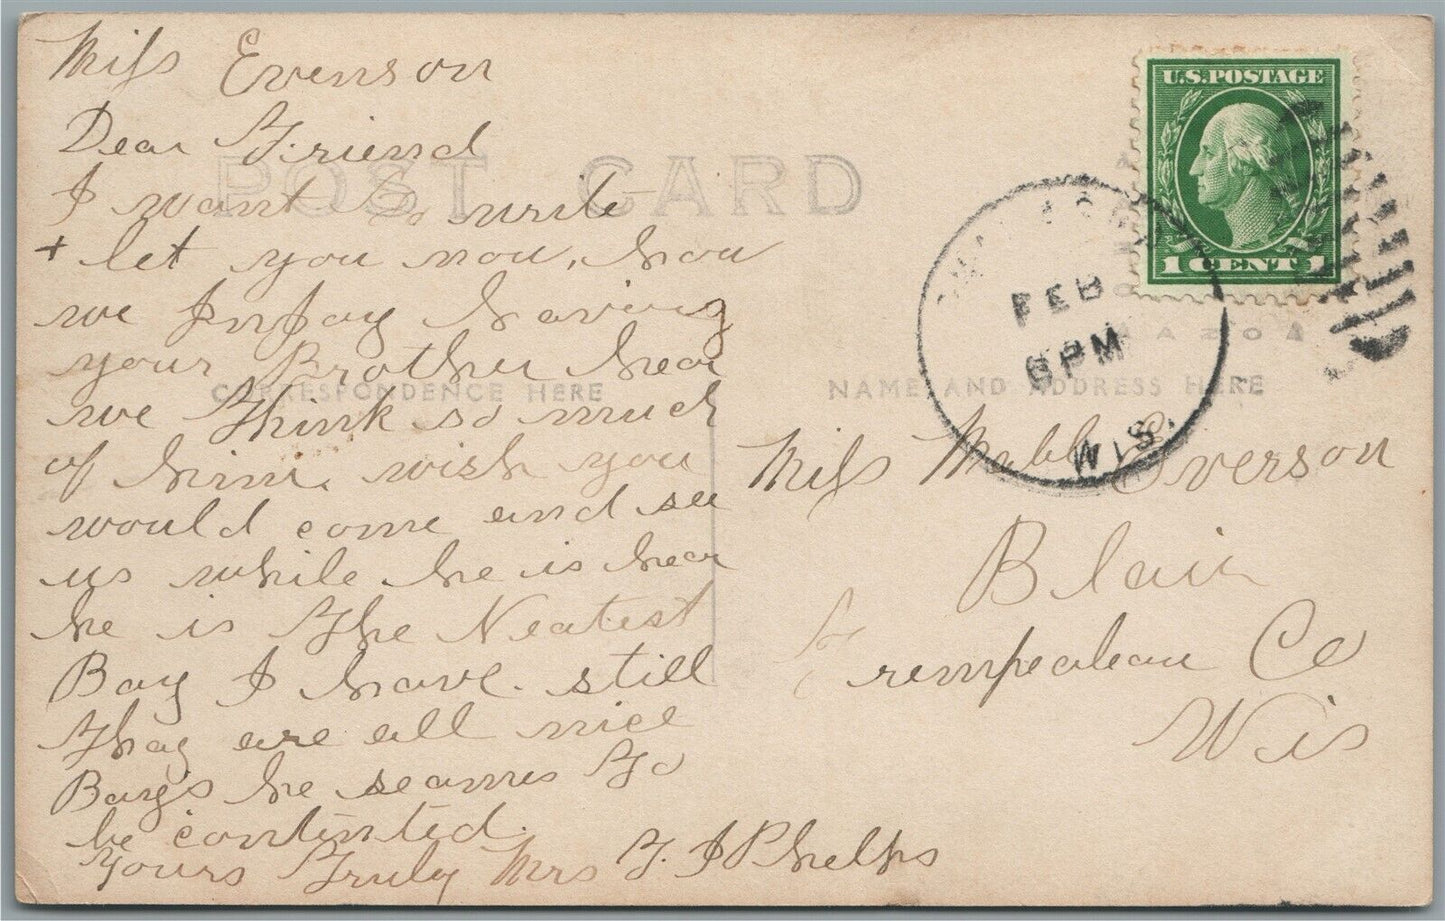 Miss Evenson
Dear Friend
I want to write
+ let you nou, hou
we InJoy having
your Brother hear
we think so much
of him. wish you
would come and see
us while he is hear
he is the Neatest
Boy I have. still
thay are all nice
Boy's he seames to
be contented.
yours truly Mrs F. J Phelps
POST CARD
CORRESPONDENCE HERE
NAME AND ADDRESS HERE
U.S. POSTAGE
1 CENT 1
FEB
PM
WIS.
AZO
Miss Mabel Everson
Blair
Trempealeau Co
Wis